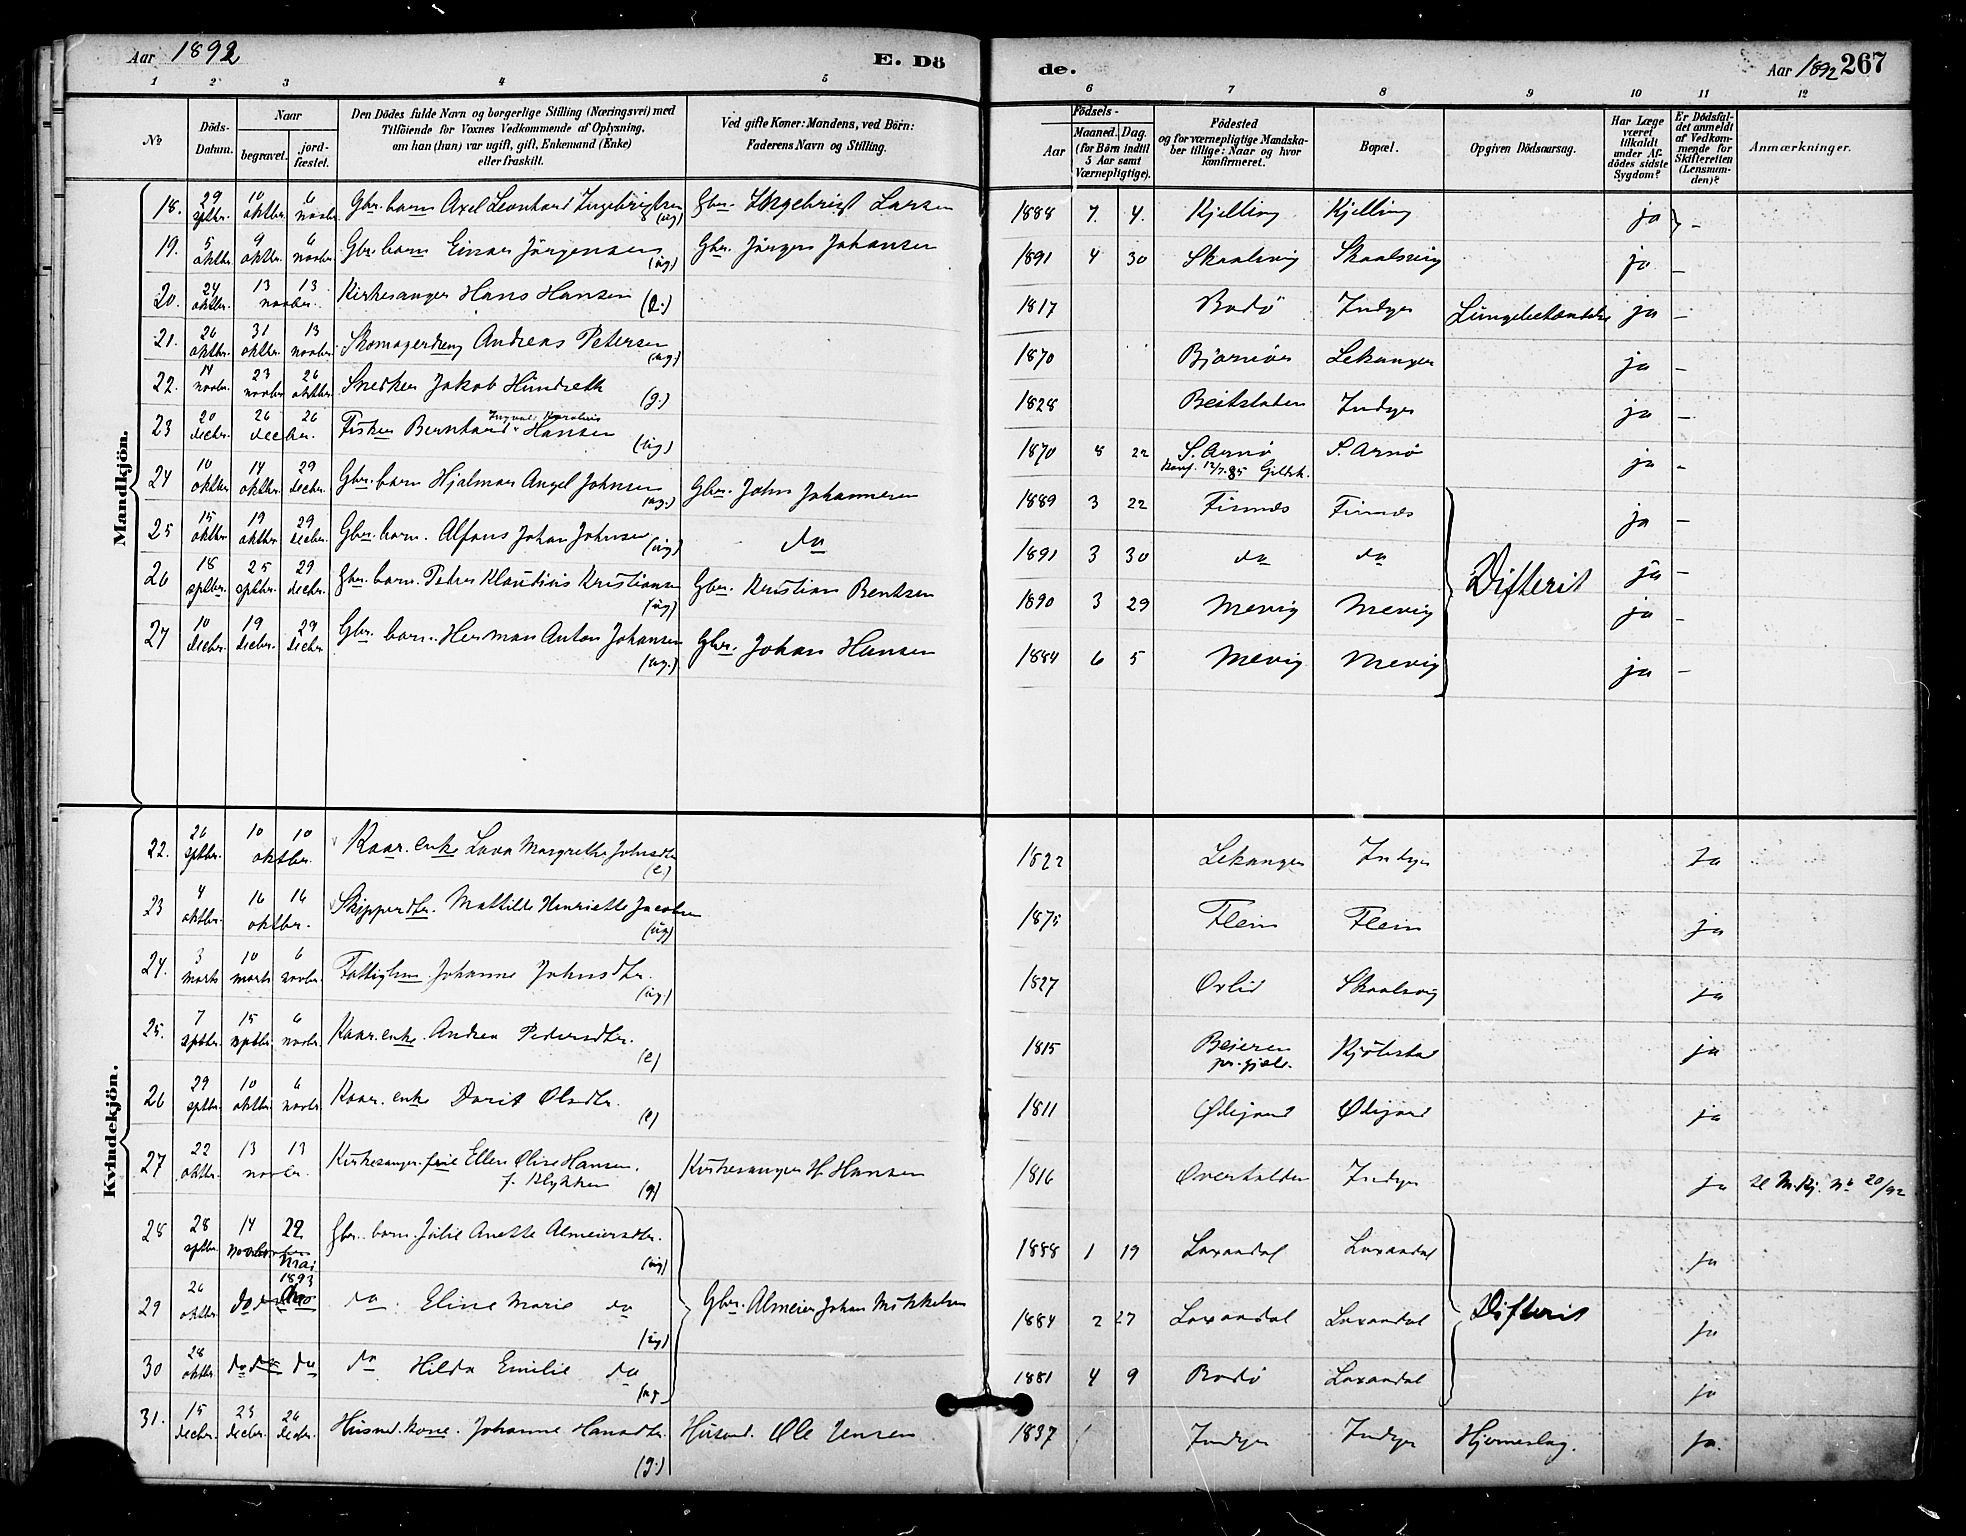 Aar 1892
E. Dö
de.
Aar 1892 267
1 2 3 4 5 6 7 8 9 10 11 12
No.
Döds-Datum.
Naar
begravet.
jord-fæstet.
Den Dödes fulde Navn og borgerlige Stilling (Næringsvei) med
Tilföiende for Voxnes Vedkommende af Oplysning,
om han (hun) var ugift, gift, Enkemand (Enke)
eller fraskilt.
Ved gifte Koner: Mandens, ved Börn:
Faderens Navn og Stilling.
Födsels-
Aar
Maaned. Dag.
(for Börn indtil
5 Aar samt
Værnepligtige).
Födested
og for værnepligtige Mandska-
ber tillige: Naar og hvor
konfirmeret.
Bopæl.
Opgiven Dödsaarsag.
Har Læge
været
tilkaldt
under Af-
dödes sidste
Sygdom?
Er Dödsfal-
det anmeldt
af Vedkom-
mende for
Skifteretten
(Lensman-
den)?
Anmærkninger.
Mandkjön.
18. 29 sptbr. 10 oktbr. 6 novbr. Gbr. barn Axel Leonhard Ingebrigtsen (ug) Gbr. Ingebrigt Larsen 1888 7. 4. Kjelling Kjelling ja -
19. 5 oktbr. 9 oktbr. 6 novbr. Gbr. barn Einar Jørgensen (ug) Gbr. Jørgen Johansen 1891 4 30 Skaalsvig Skaalsvig ja -
20. 24 oktbr. 13 13 novbr. Kirkesanger Hans Hansen (e.) 1817 Bodø Indyr Lungebetændelse ja -
21. 26 oktbr. 31 oktbr. 13 novbr. Skomagerdreng Andreas Petersen (ug) 1870 Bjarnøen Lekanger ja -
22. 14 novbr. 23 novbr 26 oktbr. Snedker Jakob Hundseth (g.) 1828 Beitstaden Indyr ja -
23 20 decbr. 26 26 decbr. Fisker Bernhard Ingval Karolius Hansen (ug) 1870 8 22 S. Arnø S. Arnø ja -
konf. 12/7.85 Gildsk.
24 10 oktbr 14 oktbr 29 decbr. Gbr. barn Hjalmar Angel Johnsen (ug.) Gbr. John Johannesen 1889 3 22 Finnæs Finnæs ja -
25 15 oktbr 19 oktbr 29 decbr. Gbr. barn. Alfons Johan Johnsen (ug) do 1891 3 30 do do Difterit ja -
26 18 sptbr 25 sptbr. 29 decbr. Gbr. barn. Peter Klaudius Kristiansen (ug) Gbr. Kristian Bentsen 1890 3 29 Mevig Mevig ja -
27 10 decbr. 19 decbr. 29 decbr. Gbr. barn. Herman Anton Johansen (ug.) Gbr. Johan Hansen 1884 6 5 Mevig Mevig ja -
Kvindekjön.
22. 26 sptbr. 10 10 oktbr. Kaar. enke Lava Margrethe Johnsdtr (e.) 1822 Lekanger Indyr Ja
23 4 oktbr. 16 16 oktbr. Skipperdtr. Mathilde Henriette Jacobsen (ug) 1875 Flein Flein ja
24. 3 marts 10 marts 6 novbr. Fattiglem. Johanne Johnsdtr. (ug.) 1827 Øvlid Skaalsvig ja
25. 7 sptbr. 15 sptbr. 6 novbr. Kaar. enke. Andrea Pedersdtr. (e) 1815 Beieren Kjølstad ja
26 29 sptbr. 10 oktbr 6 novbr. Kaar. enke Dorit Olsdtr. (e) 1811 Øligand Øligand ja
27 22 oktbr. 13 13 novbr. Kirkesanger. frue Ellen Oline Hansen. f. Blykken (g) Kirkesanger H. Hansen 1816 Overhalden Indyr ja se M.kj. No 20/92
28 28 sptbr. 14 november 22 Mai 1893 Gbr. barn. Julie Anette Almeiersdtr. (ug) 1888 1 19 Laxaadal Laxaadal ja
29 26 oktbr. do do do Eline Marie do (ug) Gbr. Almeier Johan Mikkelsen 1884 2 27 Laxaadal Laxaadal Difterit ja
30 28 oktbr do do do do Hilda Emilie do (ug. 1881 4 9 Bodø Laxaadal ja
31. 15 decbr. 23 decbr. 26 decbr. Husmd. kone. Johanne Hansdtr. (g.) Husmd. Ole Jensen 1837 Indyr Indyr Hjerneslag. ja.